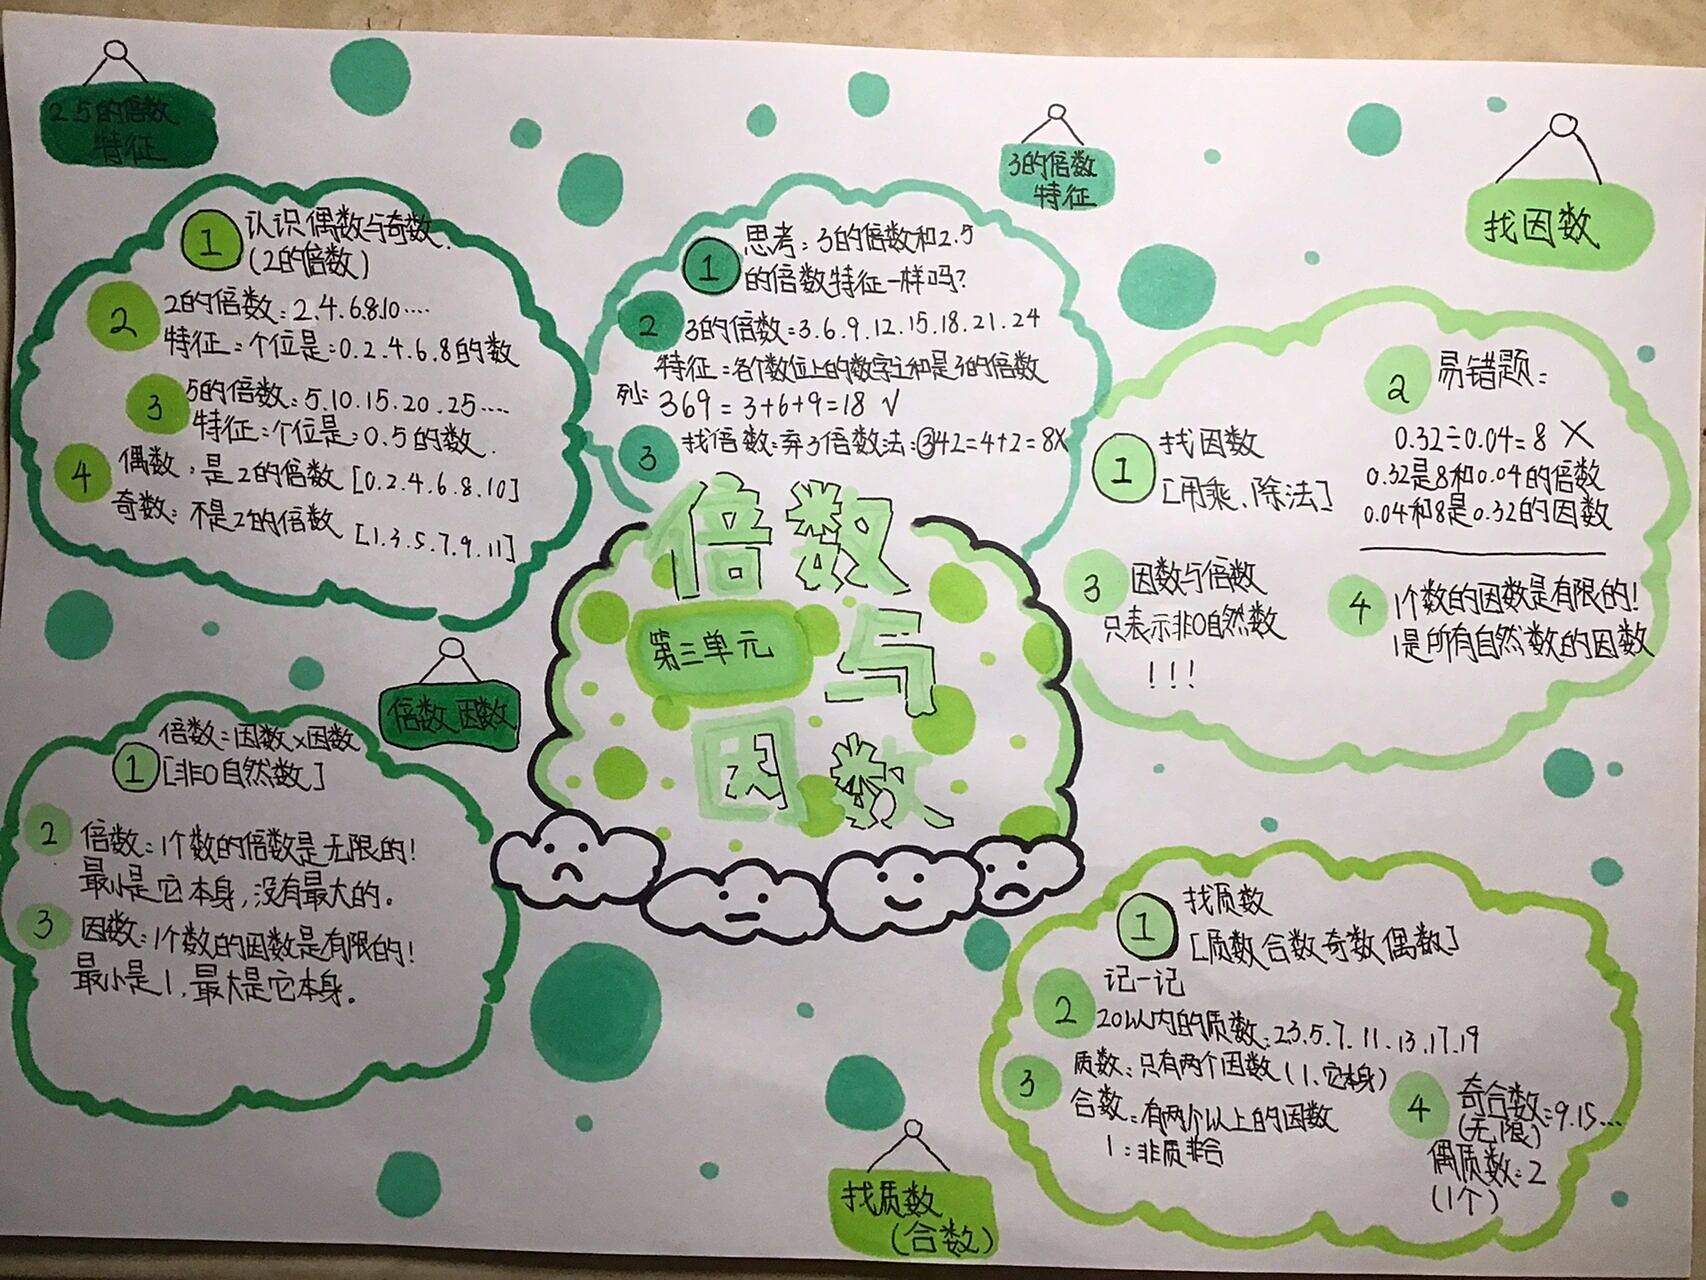 2.5的倍数
特征
1 认识偶数与奇数.
(2的倍数)
2 2的倍数:2.4.6.8.10....
特征:个位是:0.2.4.6.8的数
3 5的倍数:5.10.15.20.25....
特征:个位是:0.5的数.
4 偶数:是2的倍数[0.2.4.6.8.10]
奇数:不是2的倍数[1.3.5.7.9.11]
3的倍数
特征
1 思考:3的倍数和2.5
的倍数特征一样吗?
2 3的倍数=3.6.9.12.15.18.21.24
特征:各个数位上的数字之和是3的倍数
列:369=3+6+9=18 √
3 找倍数:弃3倍数法:③42=4+2=8X
找因数
1 找因数
[用乘、除法]
2 易错题:
0.32÷0.04=8 X
0.32是8和0.04的倍数
0.04和8是0.32的因数
3 因数与倍数
只表示非0自然数
!!!
4 1个数的因数是有限的!
1是所有自然数的因数
倍数
与
因数
第三单元
倍数 因数
1 倍数=因数×因数
[非0自然数]
2 倍数:1个数的倍数是无限的!
最小是它本身,没有最大的。
3 因数:1个数的因数是有限的!
最小是1,最大是它本身。
找质数
(合数)
1 找质数
[质数 合数 奇数 偶数]
2 记一记
20以内的质数:2.3.5.7.11.13.17.19
3 质数:只有两个因数(1、它本身)
合数:有两个以上的因数
1:非质非合
4 奇合数:9.15...
(无限)
偶质数:2
(1个)